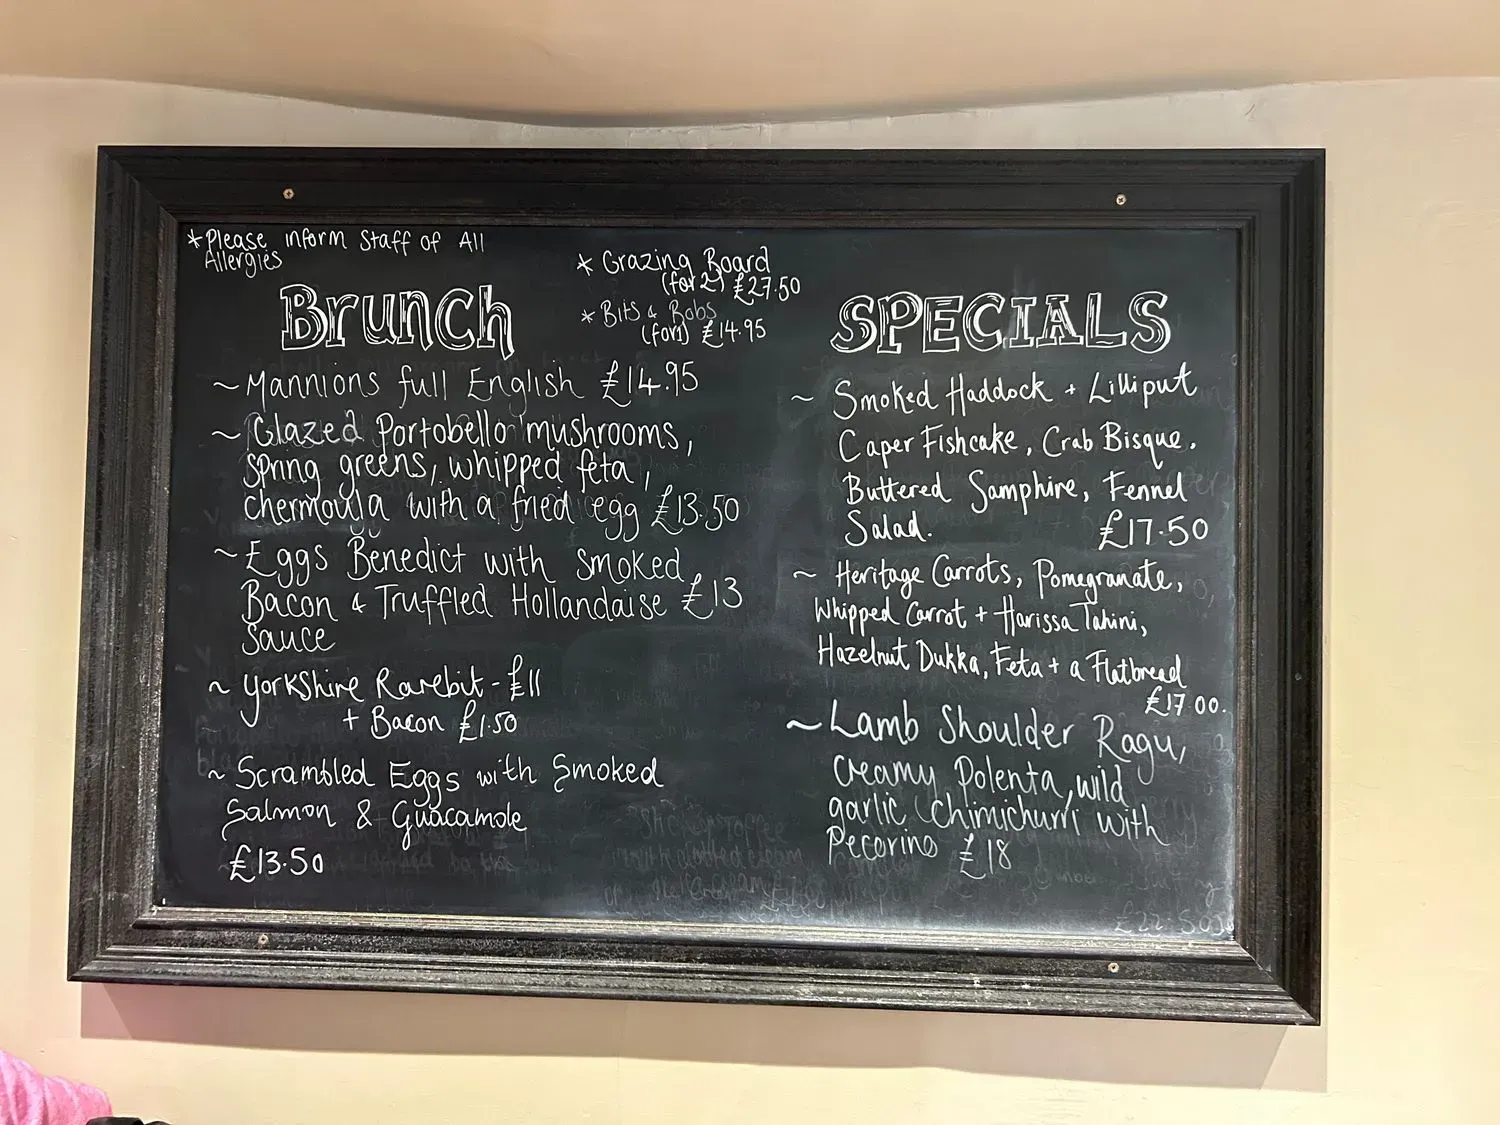 *Please inform Staff of All
Allergies
* Grazing Board
(for 2) £27.50
* Bits & Bobs
(for 1) £14.95
Brunch
~ Mannions full English £14.95
~ Glazed Portobello mushrooms,
spring greens, whipped feta,
chermoula with a fried egg £13.50
~ Eggs Benedict with smoked
Bacon & Truffled Hollandaise £13
Sauce
~ Yorkshire Rarebit - £11
+ Bacon £1.50
~ Scrambled Eggs with Smoked
Salmon & Guacamole
£13.50
SPECIALS
~ Smoked Haddock + Lilliput
Caper Fishcake, Crab Bisque.
Buttered Samphire, Fennel
Salad. £17.50
~ Heritage Carrots, Pomegranate,
Whipped Carrot + Harissa Tahini,
Hazelnut Dukka, Feta + a Flatbread
£17 00.
~ Lamb Shoulder Ragu,
creamy Polenta, wild
garlic Chimichurri with
Pecorino £18
£22.50